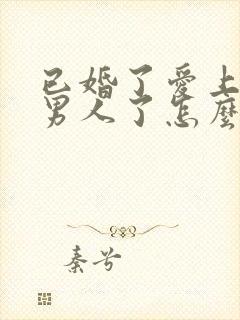 已婚了愛上
男人了怎麼
秦兮